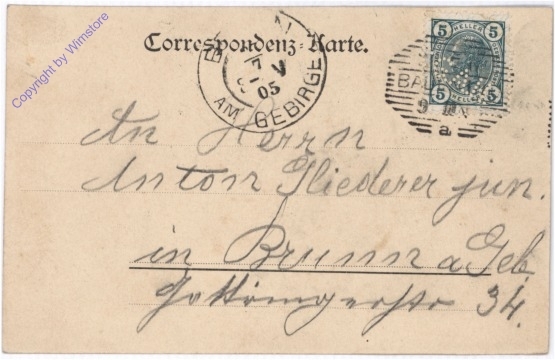 Copyright by Wimstore
Correspondenz-Karte.
5 HELLER 5
5 HELLER 5
BA
9
a
B N
7 V
05
AM GEBIRGE
An Herrn
Anton Gliederer jun.
in Brunn a Geb
34.